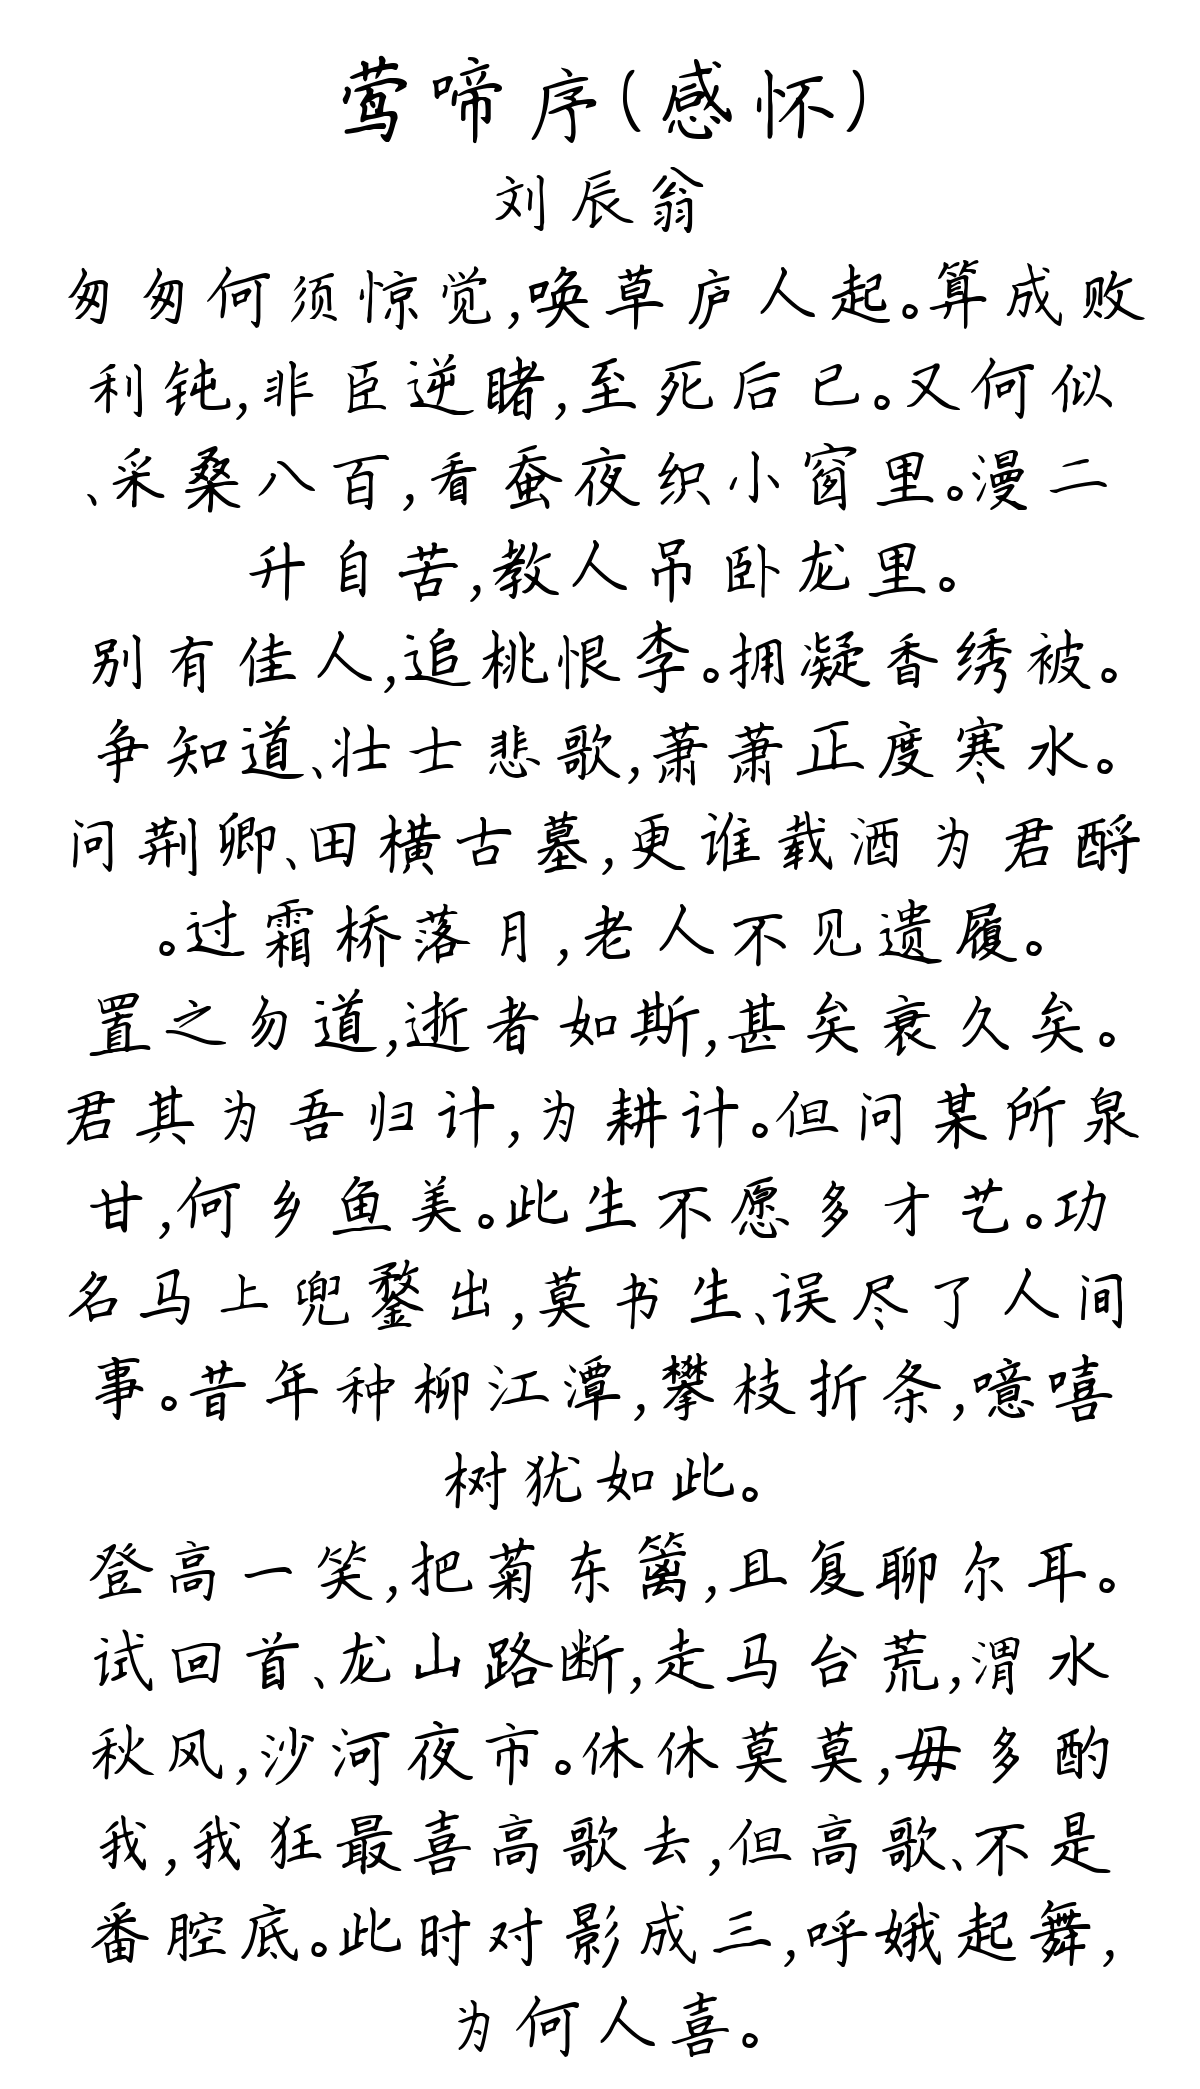 莺啼序(感怀)
刘辰翁
匆匆何须惊觉,唤草庐人起。算成败
利钝,非臣逆睹,至死后已。又何似
、采桑八百,看蚕夜织小窗里。漫二
升自苦,教人吊卧龙里。
别有佳人,追桃恨李。拥凝香绣被。
争知道、壮士悲歌,萧萧正度寒水。
问荆卿、田横古墓,更谁载酒为君酹
。过霜桥落月,老人不见遗履。
置之勿道,逝者如斯,甚矣衰久矣。
君其为吾归计,为耕计。但问某所泉
甘,何乡鱼美。此生不愿多才艺。功
名马上兜鍪出,莫书生、误尽了人间
事。昔年种柳江潭,攀枝折条,噫嘻
树犹如此。
登高一笑,把菊东篱,且复聊尔耳。
试回首、龙山路断,走马台荒,渭水
秋风,沙河夜市。休休莫莫,毋多酌
我,我狂最喜高歌去,但高歌、不是
番腔底。此时对影成三,呼娥起舞,
为何人喜。